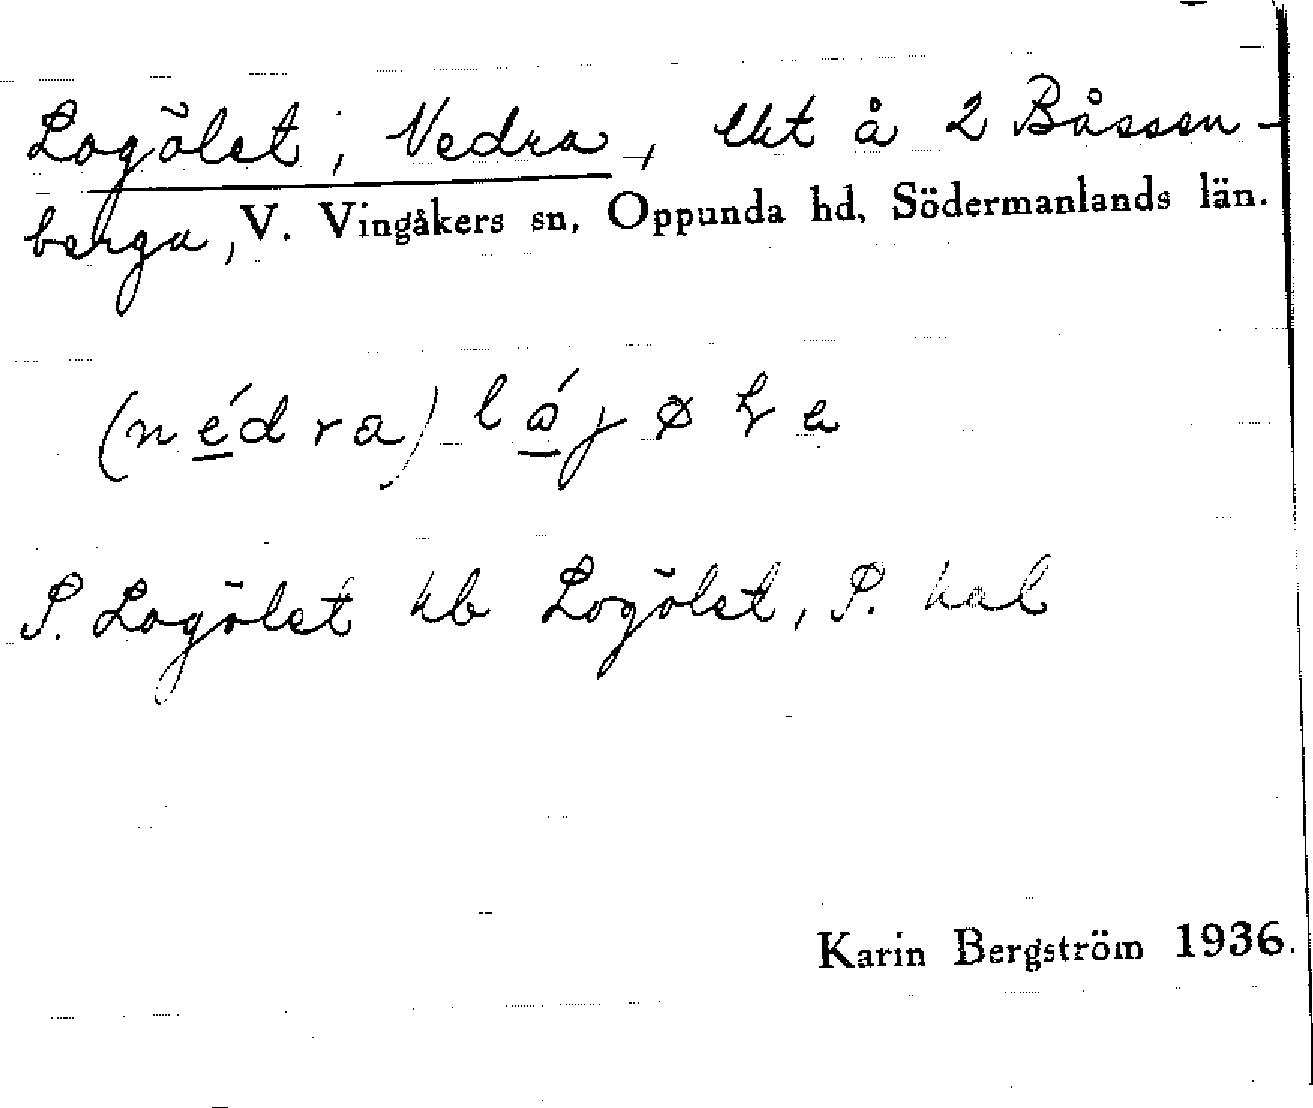 Logölet, Nedra, lkt å 2 Båssen-
berga, V. Vingåkers sn, Oppunda hd, Södermanlands län.
(nédra) láj ø
S. Logölet hb Logölet, S. kal
Karin Bergström 1936.